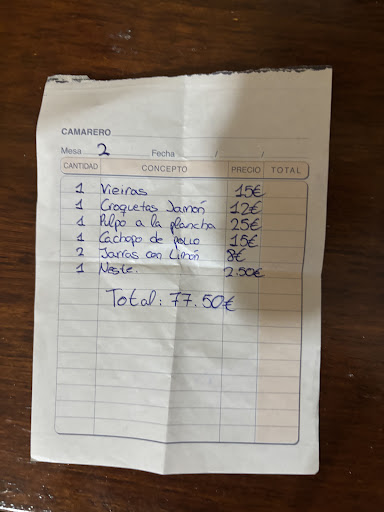 CAMARERO
Mesa 2 Fecha / /
CANTIDAD CONCEPTO PRECIO TOTAL
1 Vieiras 15€
1 Croquetas Jamón 12€
1 Pulpo a la plancha 25€
1 Cachopo de pollo 15€
2 Jarras con Limón 8€
1 Neste. 2.50€
Total: 77.50€